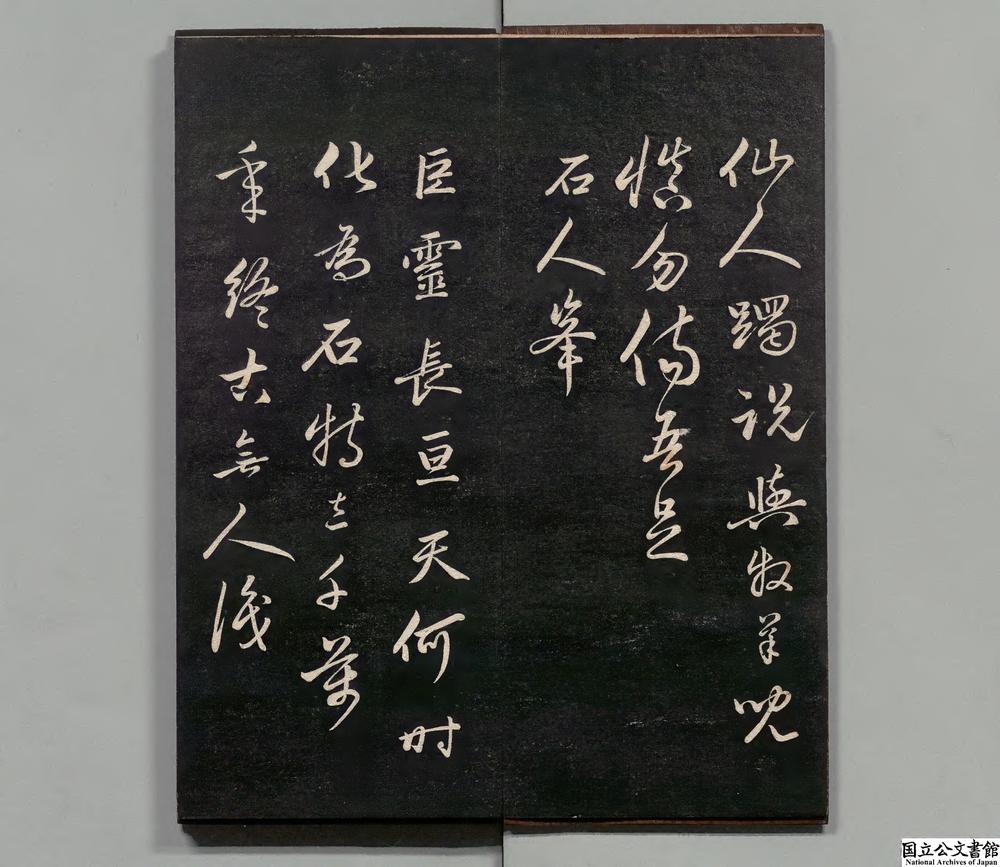 仙人躅説與牧羊兒
慎勿傷吾足
石人峯
巨靈長亘天何时
化為石特立千萬
年終古無人識
国立公文書館
National Archives of Japan